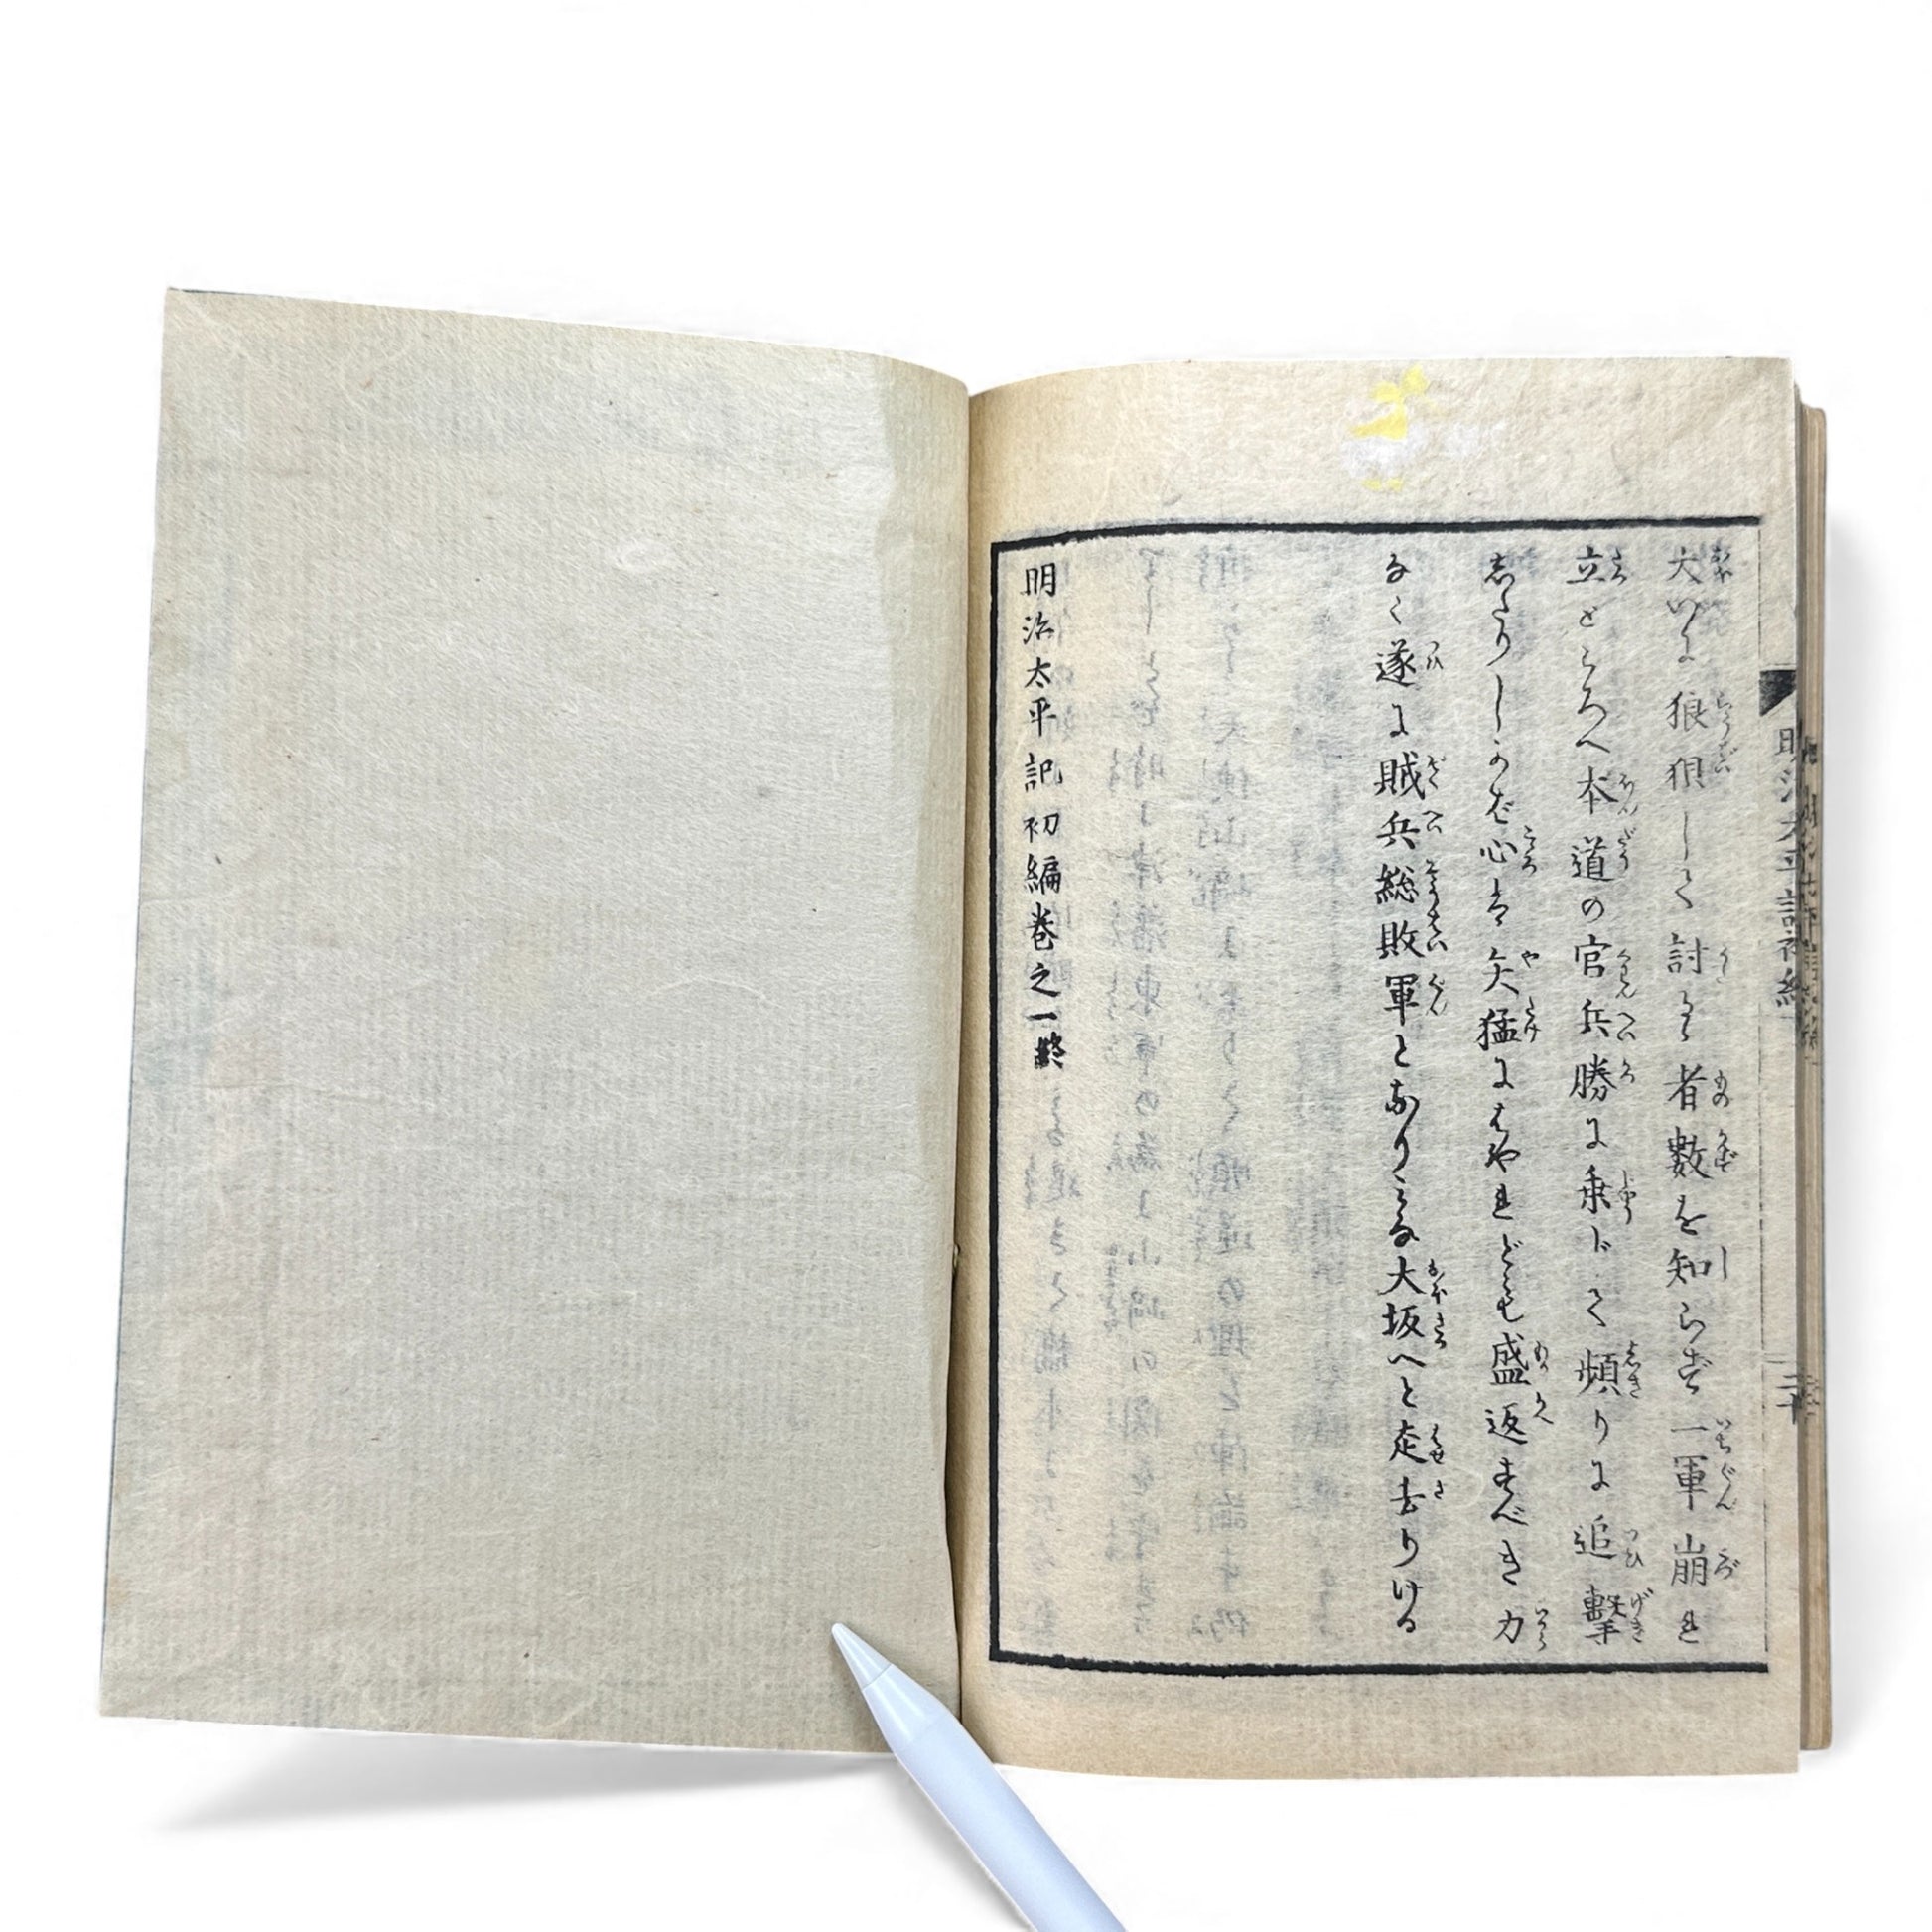 大いに狼狽して討るゝ者數を知らず一軍崩れ
立ところへ本道の官兵勝に乗じて頻りに追撃
したりしかば心は矢猛にはやれども盛返すべき力
なく遂に賊兵総敗軍となりける大坂へと走去りける
明治太平記初編巻之一終
明治太平記初編